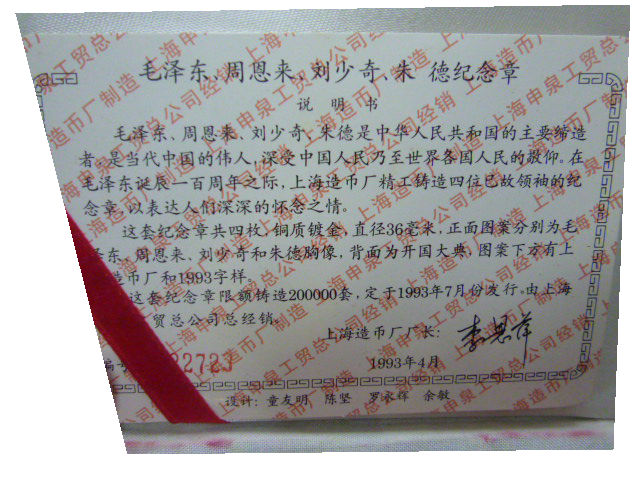 毛泽东、周恩来、刘少奇、朱 德纪念章
说 明 书
毛泽东、周恩来、刘少奇、朱德是中华人民共和国的主要缔造
者,是当代中国的伟人,深受中国人民乃至世界各国人民的敬仰。在
毛泽东诞辰一百周年之际,上海造币厂精工铸造四位已故领袖的纪
念章,以表达人们深深的怀念之情。
这套纪念章共四枚,铜质镀金,直径36毫米,正面图案分别为毛
泽东、周恩来、刘少奇和朱德胸像,背面为开国大典,图案下方有上
造币厂和1993字样。
这套纪念章限额铸造200000套,定于1993年7月份发行。由上海
贸总公司总经销。
上海造币厂厂长: 李思萍
1993年4月
编号
22723
设计: 童友明 陈坚 罗永辉 余敏
上海造币厂制造 上海申泉工贸总公司经销